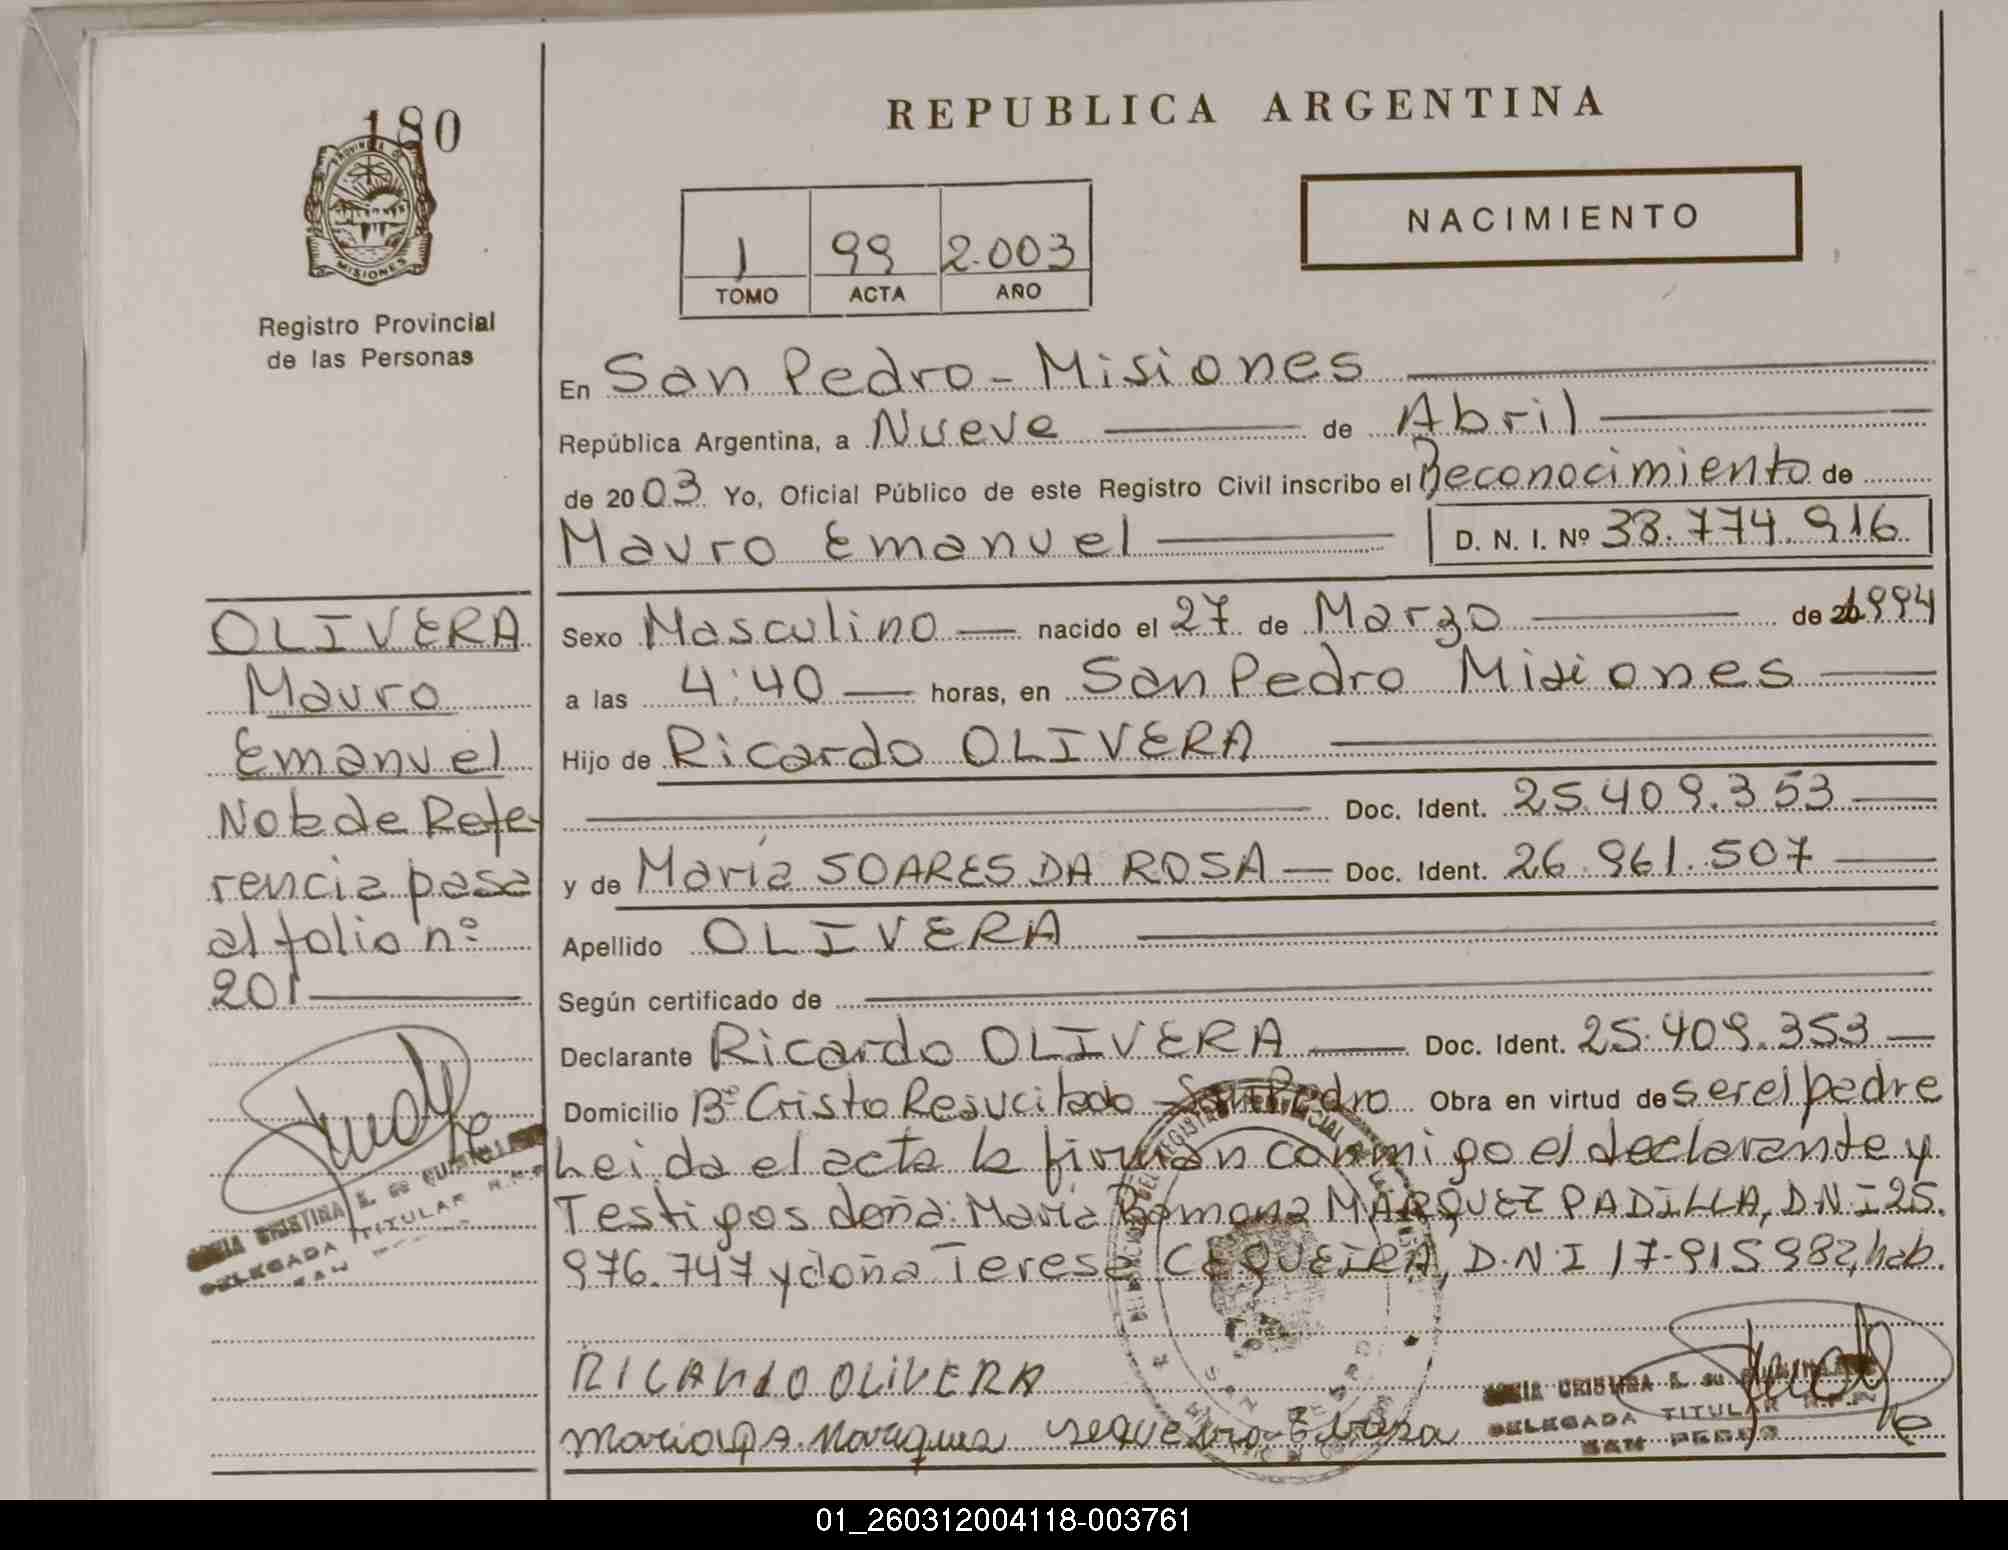 180
PROVINCIA DE
MISIONES
Registro Provincial
de las Personas
REPUBLICA ARGENTINA
NACIMIENTO
1 99 2.003
TOMO ACTA AÑO
En San Pedro - Misiones
República Argentina, a Nueve de Abril
de 2003 Yo, Oficial Público de este Registro Civil inscribo el Reconocimiento de
Mauro Emanuel D. N. I. Nº 38.774.916
Sexo Masculino nacido el 27 de Marzo de 1994
a las 4:40 horas, en San Pedro Misiones
Hijo de Ricardo OLIVERA
Doc. Ident. 25.409.353
y de María SOARES DA ROSA Doc. Ident. 26.961.507
Apellido OLIVERA
Según certificado de
Declarante Ricardo OLIVERA Doc. Ident. 25.409.353
Domicilio Bº Cristo Resucitado San Pedro Obra en virtud de ser el padre
Leida el acta la firman conmigo el declarante y
Testigos doña: María Ramona MARQUEZ PADILLA, D.N.I 25.
976.747 y doña Teresa CEQUEIRA, D.N.I 17-915982, hab.
RICARDO OLIVERA
OLIVERA
Mauro
Emanuel
Nota de Refe-
rencia pasa
al folio nº
201
CRISTINA
DELEGADA TITULAR
SAN
DELEGADA TITULAR R.P.P
SAN PEDRO
01_260312004118-003761